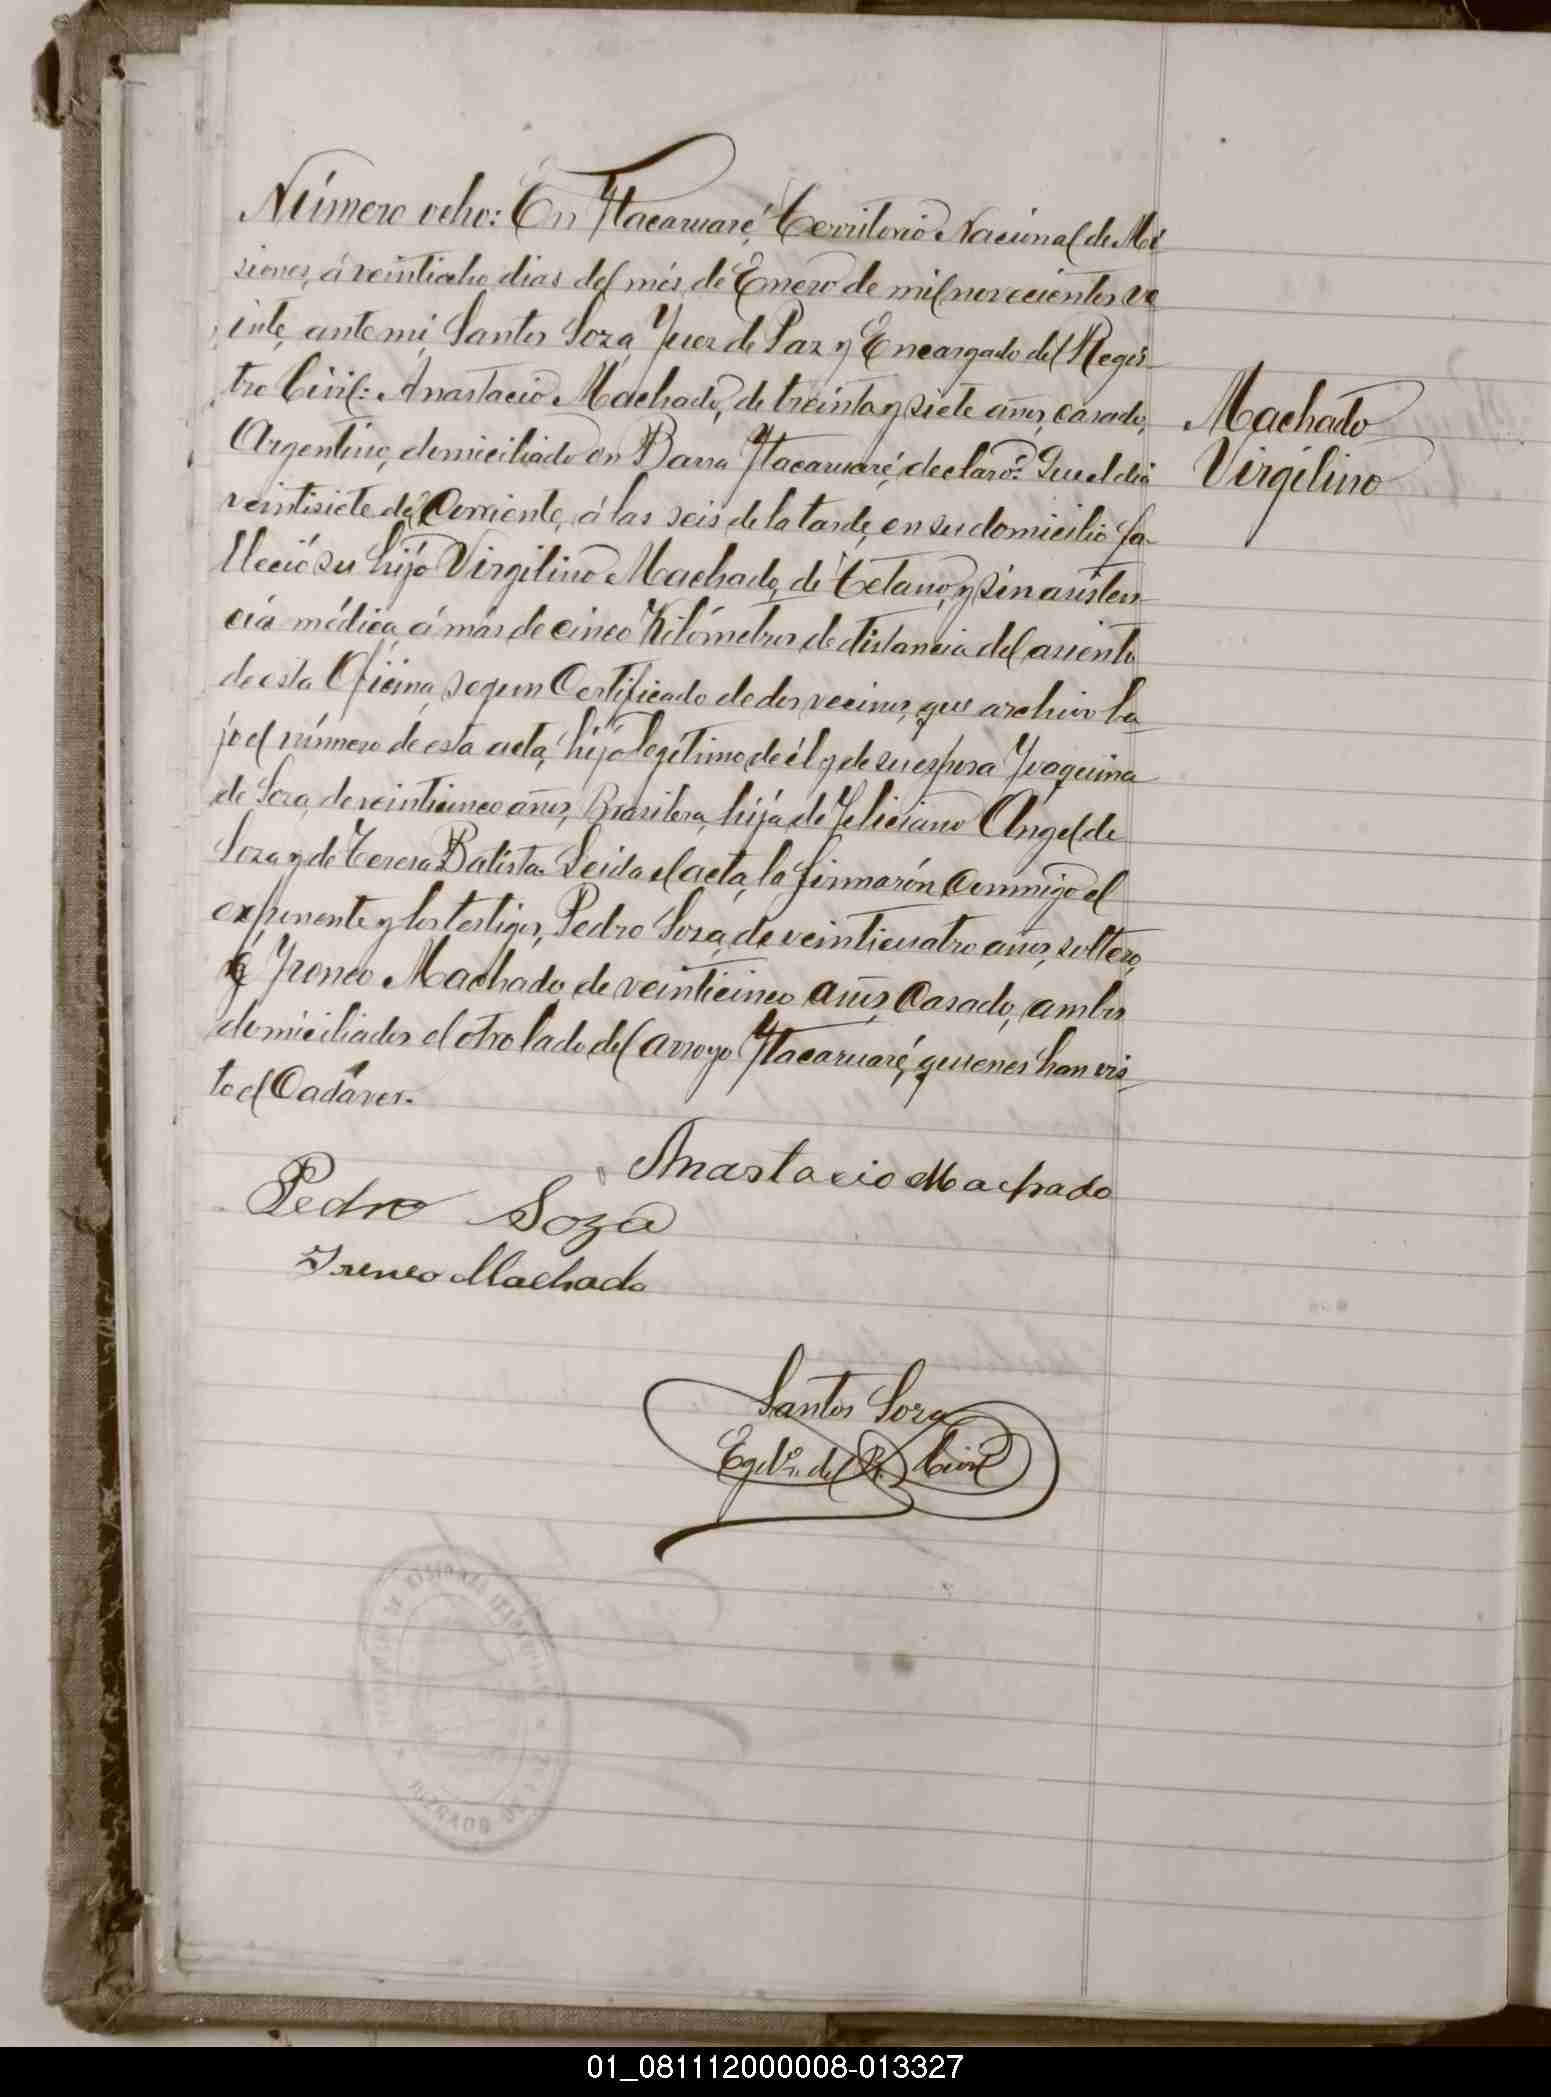 Número ocho: En Ytacaruaré, Territorio Nacional de Mi
siones, á veintiocho dias del més de Enero de mil novecientos ve
inte, ante mi, Santos Soza, Juez de Paz y Encargado del Regis-
tro Civil: Anastacio Machado, de treinta y siete años, casado,
Argentino, domiciliado en Barra Ytacaruaré, declaró: Que el dia
veintisiete del Corriente, á las seis de la tarde, en su domicilio fa-
lleció su hijo Virgilino Machado, de Tetano, y sin asisten-
cia médica, á más de cinco Kilómetros de distancia del asiento
de esta Oficina, segun Certificado de dos vecinos, que archivo ba-
jo el número de esta acta, hijo legitimo de él y de su esposa Joaquina
de Soza, de veinticinco años, Brasilera, hija de Feliciano Angel de
Soza y de Teresa Batista. Leida el acta, la firmarón Conmigo el
exponente y los testigos, Pedro Soza, de veinticuatro años, soltero,
é Yreneo Machado, de veinticinco años, Casado, ambos
domiciliados el otro lado del arroyo Ytacaruaré, quienes han vis-
to el Cadáver.
Machado
Virgilino
Anastacio Machado
Pedro Soza
Ireneo Machado
Santos Soza
Egdo. del R. Civil
01_081112000008-013327